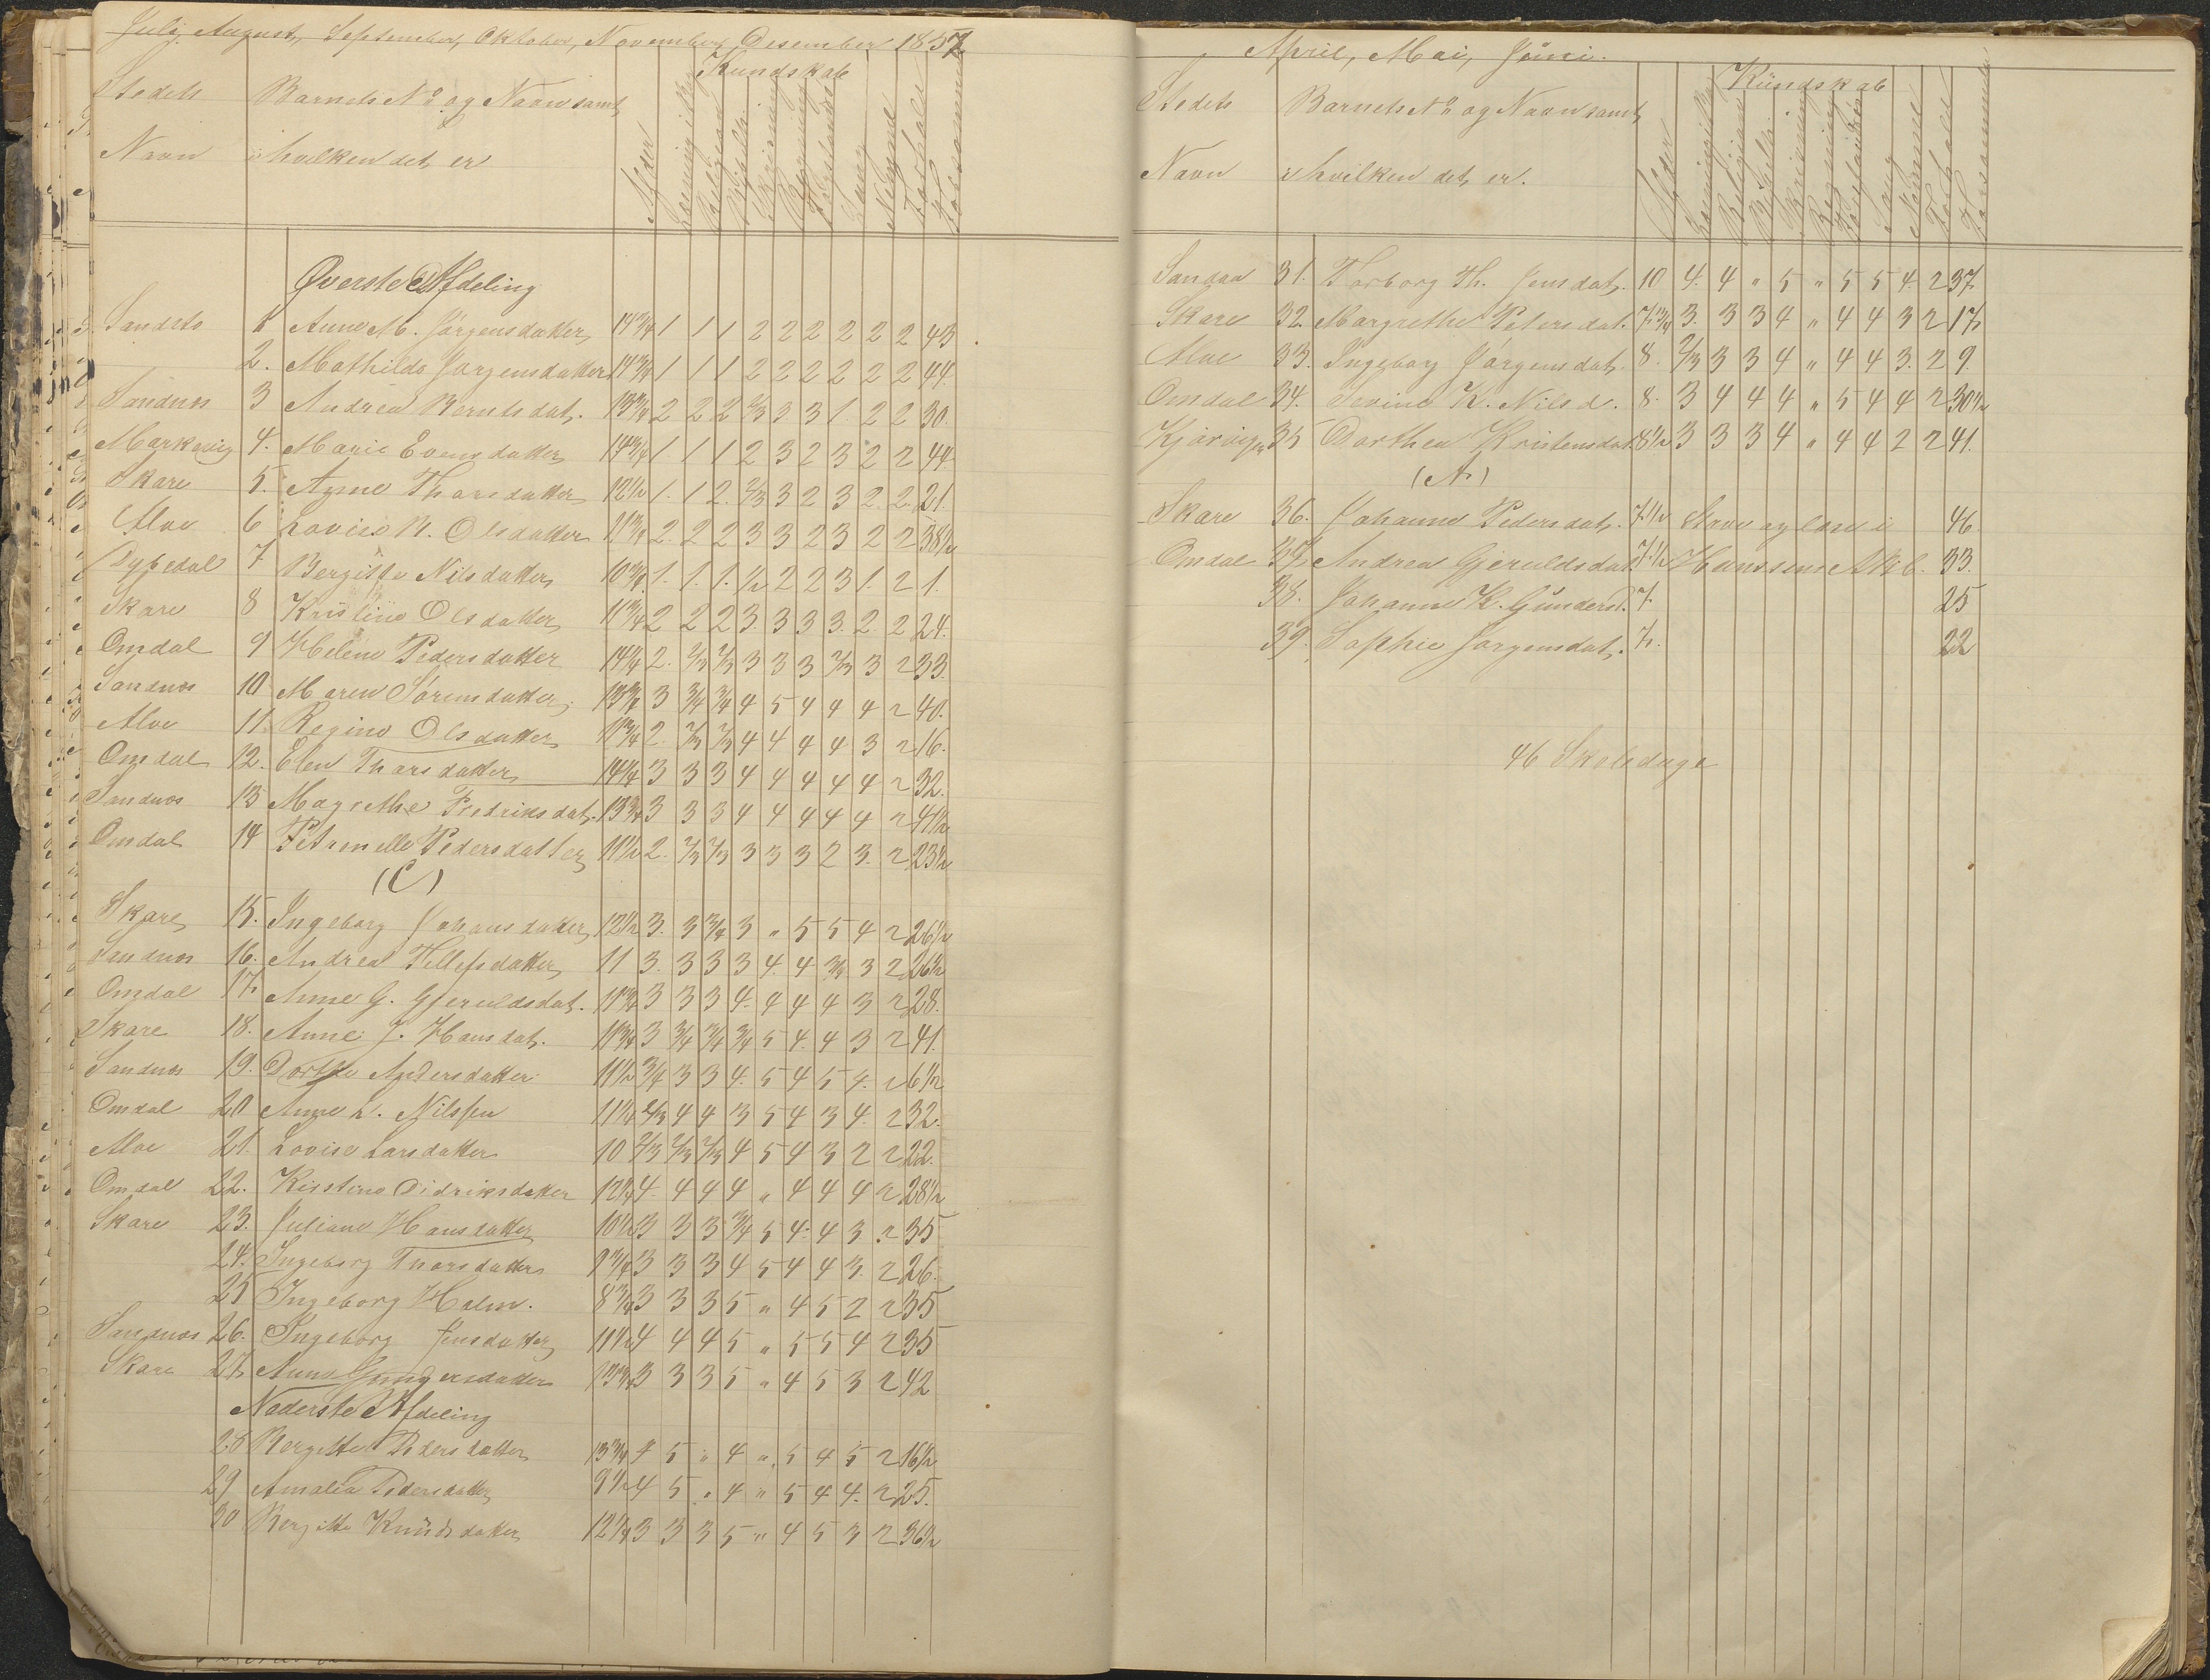 July, August, September, Oktober, November, Desember 1857
Kundskab
Stedets Barnets No og Navn samt
Navn i hvilken det er
Alder Religion Sang
Øverste Afdeling
1 Anne M. Jörgensdatter 14 3/4 1 1 1 2 2 2 2 2 2 43
2. Mathilde Jörgensdatter 14 3/4 1 1 1 2 2 2 2 2 2 44
Sandnæs 3 Andrea Berntsdat. 13 3/4 2 2 2 2/3 3 3 1 2 2 30
4. Marie Evensdatter 14 3/4 1 1 1 2 3 2 3 2 2 44
Skare 5. Thorsdatter 12 1/2 1. 1 2. 2/3 3 2 3 2. 2. 21.
Moe 6 Lovise N. Olsdatter 11 3/4 2. 2 2 3 3 2 3 2 2 38 1/2
Dypedal 7 Bergitte Nilsdatter 10 3/4 1. 1. 1. 1/2 2 2 3 1. 2 1.
Skare 8 Kristine Olsdatter 11 3/4 2 2 2 3. 3 3 3. 2. 2 24.
Omdal 9 Helene Pedersdatter 14 1/4 2. 2/3 2/3 3 3 3 2/3 3 2 33.
Sandnæs 10 Maren Sörensdatter 13 3/4 3 3/4 3/4 4 5 4 4 4 2 40.
Moe 11. Regine Olsdatter 11 3/4 2. 2/3 2/3 4 4 4 4 3 2 16.
Omdal 12. Elen Thorsdatter 14 1/4 3 3 3 4 4 4 4 4 2 32.
Sandnæs 13 Magrethe Fredriksdat. 13 3/4 3 3 3 4 4 4 4 4 2 41 1/2
Omdal 14 Petronelle Pedersdatter 11 1/2 2. 2/3 2/3 3 3 3 2 3. 2 23 1/2
(C)
Skare 15. Ingeborg Johansdatter 12 1/2 3. 3 3/4 3 " 5 5 4 2 26 1/2
Sandnæs 16. Andrea Tellefsdatter 11 3. 3 3 3 4. 4 3/4 3 2 26 1/2
Omdal 17. Anne G. Gjeruldsdat. 11 3/4 3 3 3 4. 4 4 4 3 2 28.
Skare 18. Anne J. Hansdat. 11 3/4 3 3/4 3/4 3/4 5 4. 4 3 2 41.
Sandnæs 19. Dorthe Andersdatter 11 1/2 3/4 3 3 4. 5 4 5 4. 2 6 1/2
Omdal 20 Anne L. Nilssen 11 1/4 2/3 4 4 3 5 4 3 4. 2 32.
Moe 21. Lovise Larsdatter 10 2/3 2/3 2/3 4 5 4 3 2 2 22.
Omdal 22. Kisstine Didriksdatter 12 1/4 4. 4 4 4 " 4 4 4 2 28 1/2
Skare 23. Juliane Hansdatter 10 1/2 3 3 3 3/4 5 4. 4 3 2 35
24. Ingeborg Thorsdatter 9 3/4 3 3 3 4 5 4 4 3. 2 26.
25 Ingeborg Holm. 8 3/4 3 3 3 5 " 4 5 2 2 35
Sandnæs 26. Ingeborg Jensdatter 11 1/2 4 4 4 5 " 5 5 4 2 35
Skare 27. Anne Gundersdatter 13 3/4 3 3 3 5 " 4 5 3 2 42
Nederste Afdeling
28 Bergitte Pedersdatter 13 3/4 4 5 " 4 " 5 4 5 2 16 1/2
29 Amalia Pedersdatter 9 1/2 4 5 " 4 " 5 4 4. 2 25.
30 Bergitte Knüdsdatter 12 1/4 3 3 3 5 " 4 5 3 2 36 1/2
April, Mai, Jüni.
Kündskab
Stedets Barnets No og Navn samt
Navn i hvilken det er.
Alder Religion Sang
31. Torborg Th. Jensdat. 10 4. 4 " 5 " 5 5 4 2 37
Skare 32. Margrethe Petersdat. 7 3/4 3. 3 3 4 " 4 4 3 2 17
Moe 33. Ingeborg Jörgensdat. 8. 2/3 3 3 4 " 4 4 3. 2 9.
Omdal 34. K. Nilsd. 8. 3 4 4 4 " 5 4 4 2 30 1/2
35 Dorthea Kristensdat. 8 1/2 3 3 3 4 " 4 4 2 2 41.
(A)
Skare 36. Johanne Pedersdat. 7 1/2 Stave og læse i 46.
Omdal 37. Andrea Gjeruldsdat. 7 1/2 Hanssens Abc. 33.
38. Johanne K. Günderd. 7. 25
39. Sophie Jorgensdat. 7. 22
46 Skoledage